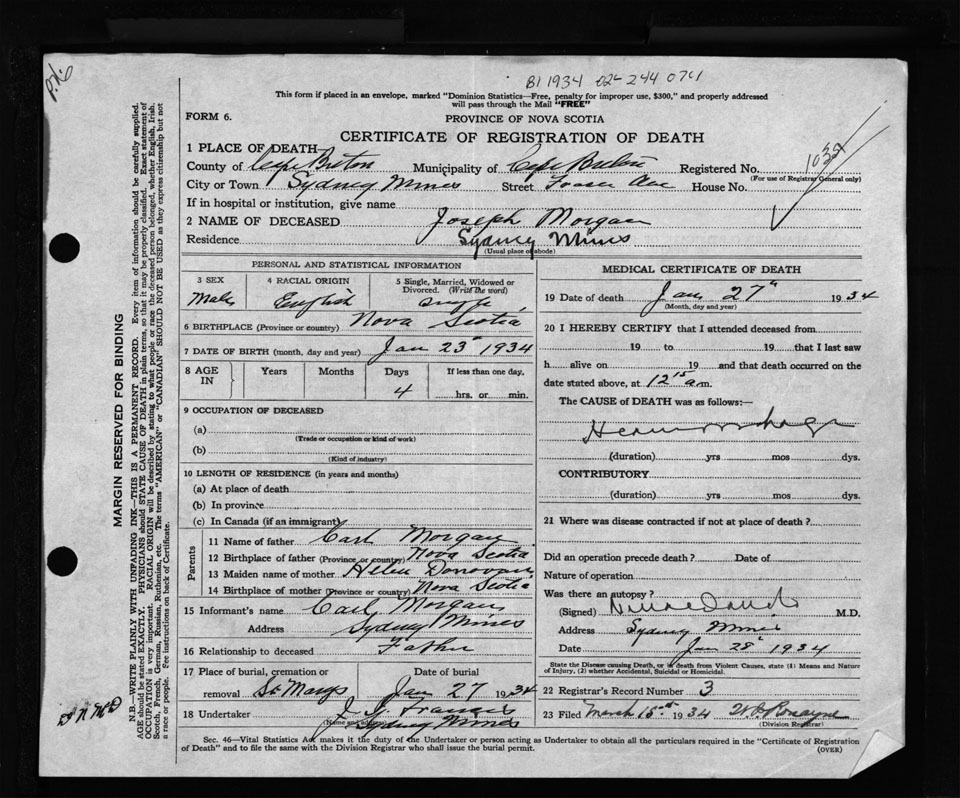 P.K.
B1 1934 02- 244 0701
This form if placed in an envelope, marked "Dominion Statistics—Free, penalty for improper use, $300," and properly addressed
will pass through the Mail "FREE"
FORM 6.
PROVINCE OF NOVA SCOTIA
CERTIFICATE OF REGISTRATION OF DEATH
1 PLACE OF DEATH—
County of Cape Breton Municipality of Cape Breton Registered No.
(For use of Registrar General only)
City or Town Sydney Mines Street Fraser Ave House No.
If in hospital or institution, give name
2 NAME OF DECEASED Joseph Morgan
Residence Sydney Mines
(Usual place of abode)
PERSONAL AND STATISTICAL INFORMATION
3 SEX 4 RACIAL ORIGIN 5 Single, Married, Widowed or
Divorced. (Write the word)
Male English Single
6 BIRTHPLACE (Province or country) Nova Scotia
7 DATE OF BIRTH (month, day and year) Jan 23 1934
8 AGE IN Years Months Days If less than one day,
4 hrs. or min.
9 OCCUPATION OF DECEASED
(a)
(Trade or occupation or kind of work)
(b)
(Kind of industry)
10 LENGTH OF RESIDENCE (in years and months)
(a) At place of death
(b) In province
(c) In Canada (if an immigrant)
Parents
11 Name of father Carl Morgan
12 Birthplace of father (Province or country) Nova Scotia
13 Maiden name of mother Helen Donovan
14 Birthplace of mother (Province or country) Nova Scotia
15 Informant's name Carl Morgan
Address Sydney Mines
16 Relationship to deceased Father
17 Place of burial, cremation or Date of burial
removal St Marys Jan 27 1934
18 Undertaker Francis
(Name and address) Sydney Mines
MEDICAL CERTIFICATE OF DEATH
19 Date of death Jan 27" 1934
(Month, day and year)
20 I HEREBY CERTIFY that I attended deceased from
19 to 19 that I last saw
h alive on 19 and that death occurred on the
date stated above, at 12 15 a.m.
The CAUSE of DEATH was as follows:—
Heamorrhage
(duration) yrs mos dys.
CONTRIBUTORY
(duration) yrs mos dys.
21 Where was disease contracted if not at place of death?
Did an operation precede death? Date of
Nature of operation
Was there an autopsy?
(Signed) M.D.
Address Sydney Mines
Date Jan 28" 1934
State the Disease causing Death, or if death from Violent Causes, state (1) Means and Nature
of Injury, (2) whether Accidental, Suicidal or Homicidal.
22 Registrar's Record Number 3
23 Filed March 15th 1934
(Division Registrar)
Sec. 46—Vital Statistics Act makes it the duty of the Undertaker or person acting as Undertaker to obtain all the particulars required in the "Certificate of Registration
of Death" and to file the same with the Division Registrar who shall issue the burial permit.
(OVER)
MARGIN RESERVED FOR BINDING
N.B.—WRITE PLAINLY WITH UNFADING INK—THIS IS A PERMANENT RECORD. Every item of information should be carefully supplied.
AGE should be stated EXACTLY. PHYSICIANS should STATE CAUSE OF DEATH in plain terms, so that it may be properly classified. Exact statement of
OCCUPATION is very important. RACIAL ORIGIN will be described by stating to what people or race the deceased person belonged, whether English, Irish,
Scotch, French, German, Russian, Ruthenian, etc. The terms "AMERICAN" or "CANADIAN" SHOULD NOT BE USED as they express citizenship but not
a race or people. See instructions on back of Certificate.